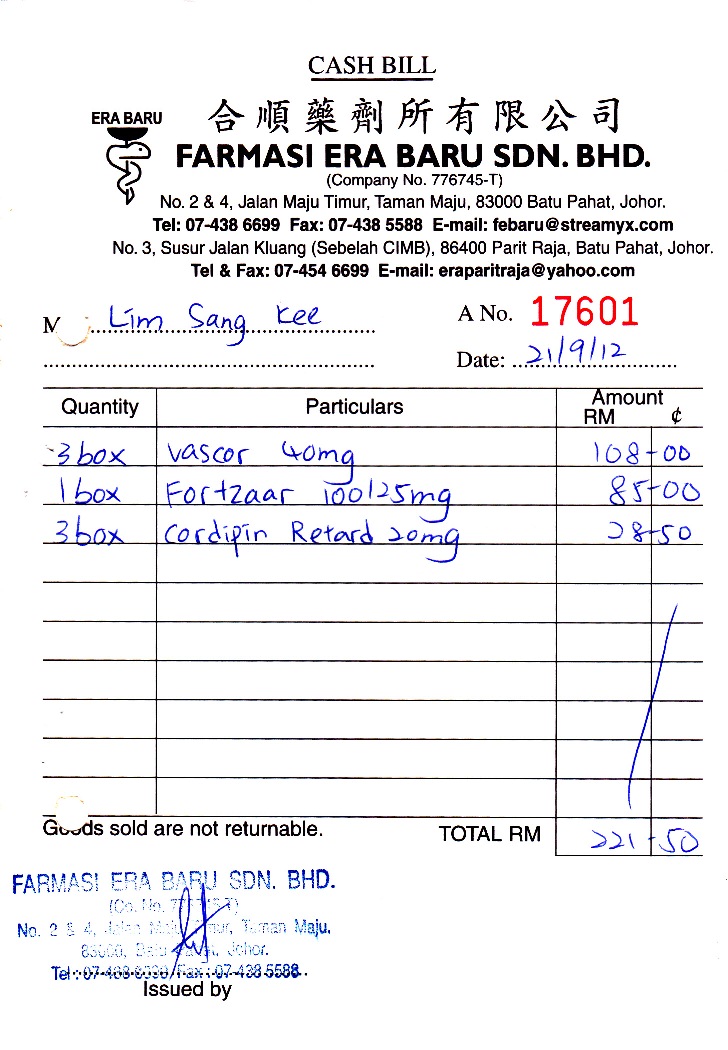 CASH BILL
ERA BARU
合順藥劑所有限公司
FARMASI ERA BARU SDN. BHD.
(Company No. 776745-T)
No. 2 & 4, Jalan Maju Timur, Taman Maju, 83000 Batu Pahat, Johor.
Tel: 07-438 6699 Fax: 07-438 5588 E-mail: febaru@streamyx.com
No. 3, Susur Jalan Kluang (Sebelah CIMB), 86400 Parit Raja, Batu Pahat, Johor.
Tel & Fax: 07-454 6699 E-mail: eraparitraja@yahoo.com
M Lim Sang Kee A No. 17601
Date: 21/9/12
Quantity Particulars Amount
RM ¢
3 box Vascor 40mg 108-00
1 box Fortzaar 100125mg 85-00
3 box Cordipin Retard 20mg 28-50
Goods sold are not returnable. TOTAL RM 221-50
FARMASI ERA BARU SDN. BHD.
(Co. No.
No. 2 & 4, Jalan Taman Maju,
83000, Johor.
Tel: Fax: 07-438 5588
Issued by